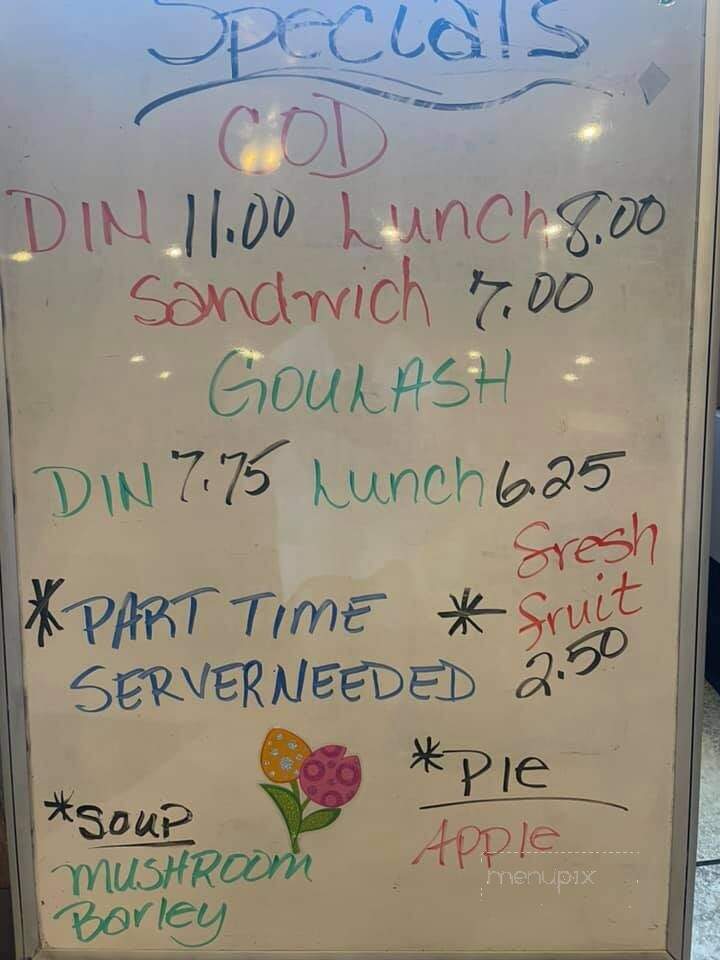 Specials
COD
DIN 11.00 Lunch 8.00
Sandwich 7.00
GOULASH
DIN 7.75 Lunch 6.25
* PART TIME
SERVER NEEDED
* fresh
fruit
2.50
*SOUP
MUSHROOM
Barley
*PIE
APPle
menupix